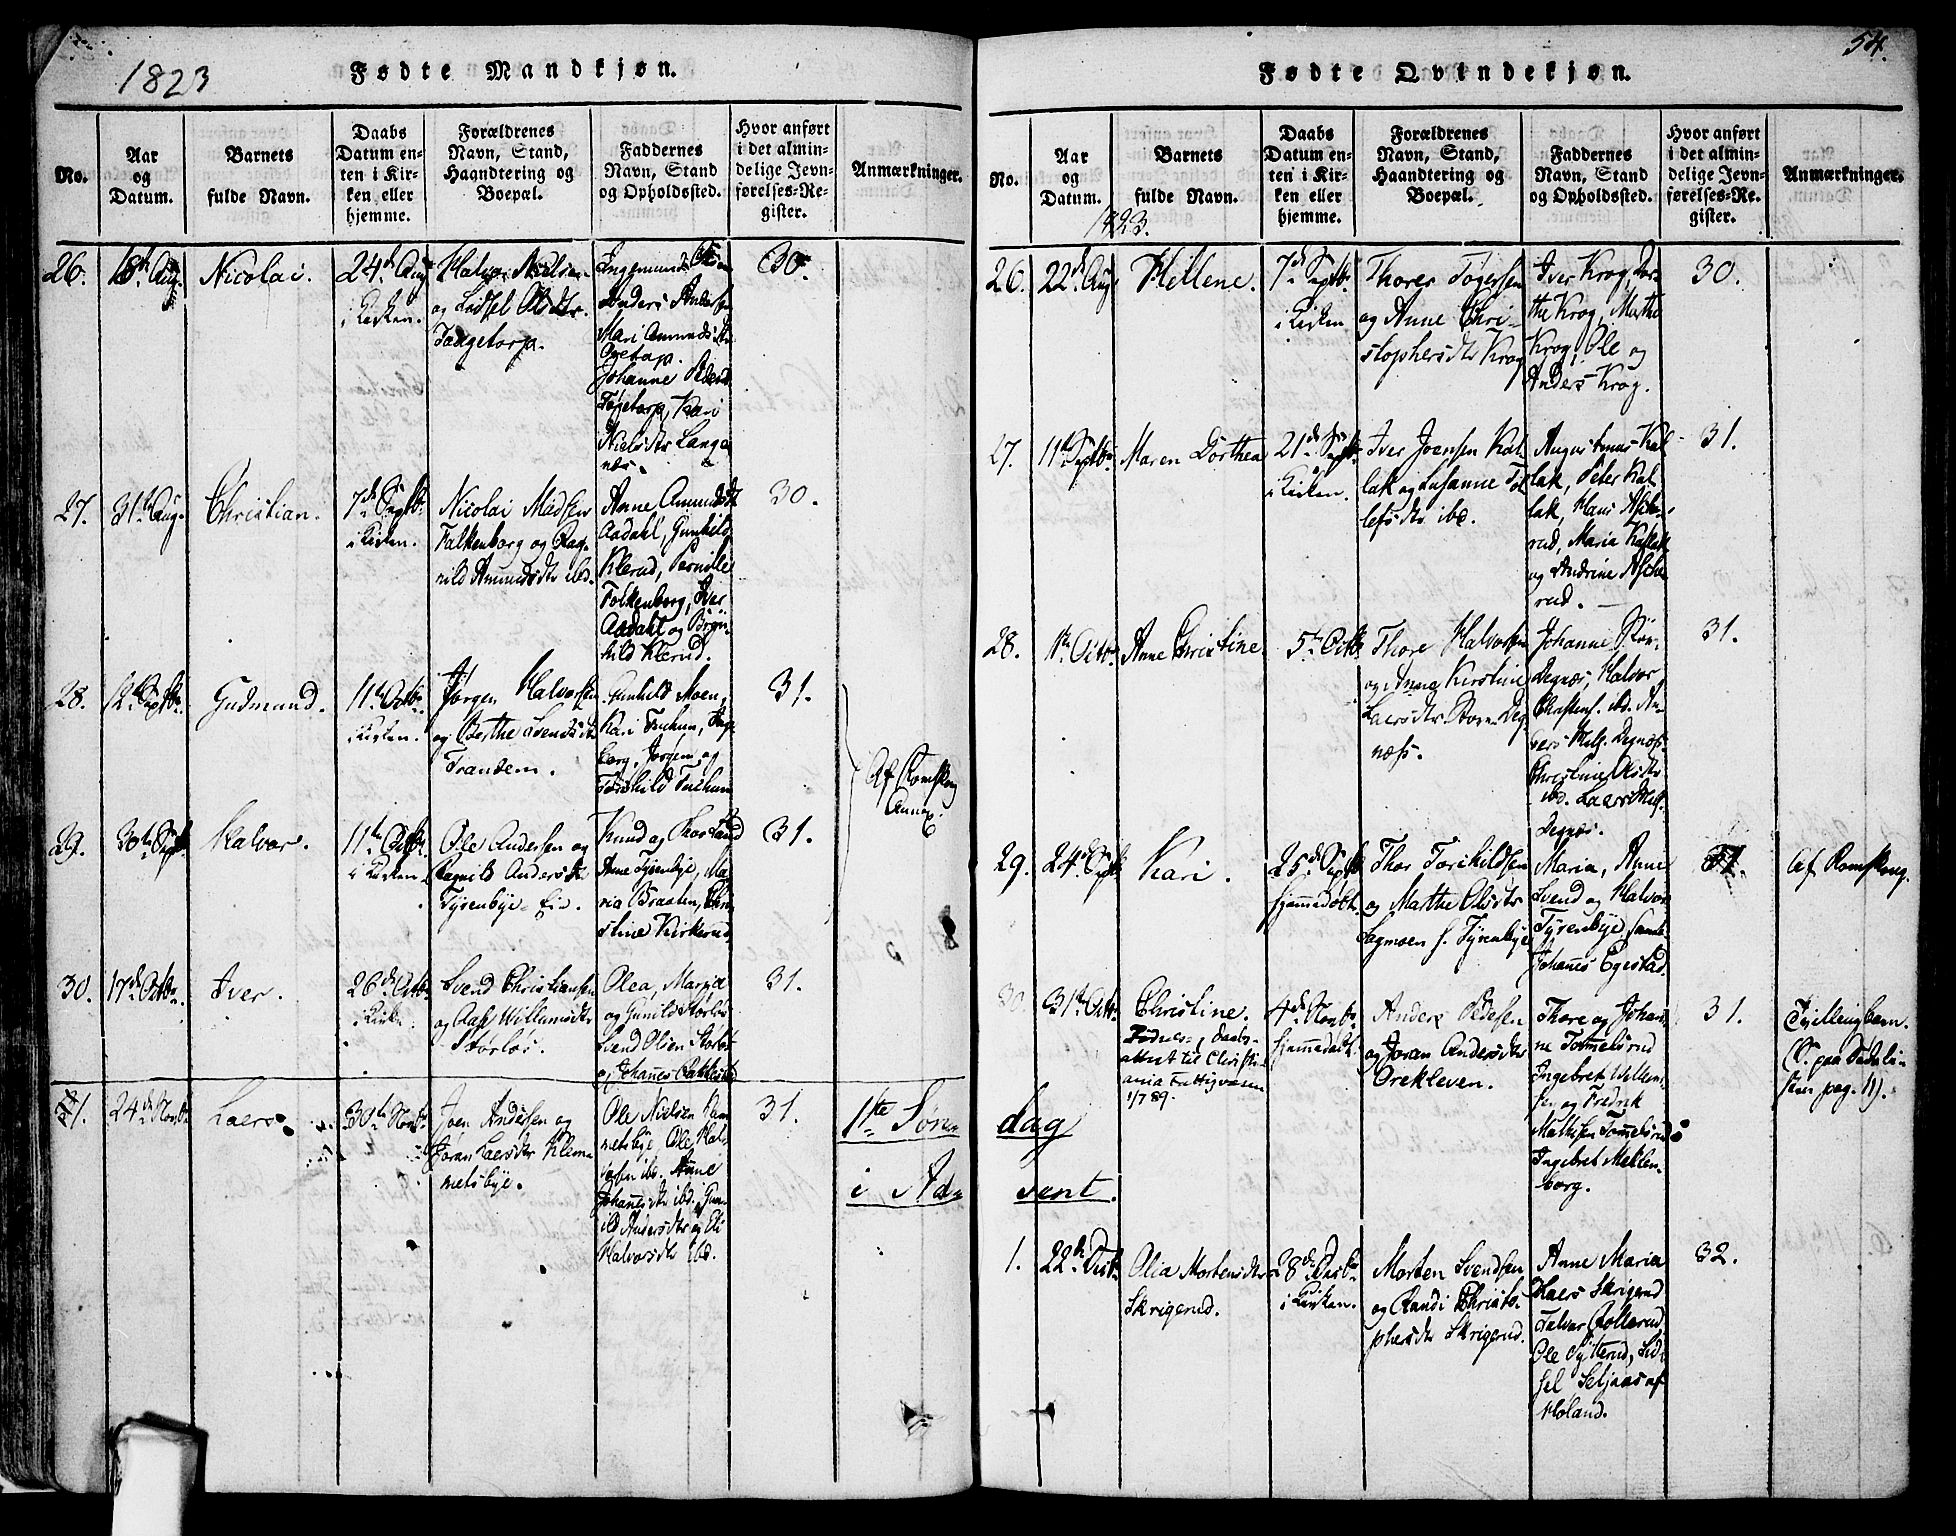 1823
Fødte Mandkjøn.
No.
Aar
og
Datum.
Barnets
fulde Navn.
Daabs
Datum en-
ten i Kir-
ken eller
hjemme.
Forældrenes
Navn, Stand,
Haandtering og
Boepæl.
Faddernes
Navn, Stand
og Opholdssted.
Hvor anført
i det almin-
delige Jevn-
førelses-Re-
gister.
Anmærkninger.
26.
18de Aug.
Nicolai.
24de Aug
i Kirken.
Halvor Nielsen
og Olsdtr
Anders Andersen
Mari Amundsdtr
Johanne
Kari
Nielsdtr Langa
næs.
30.
27.
31te Aug.
Christian.
7de Septbr
i Kirken.
Nicolai Madsen
Falkenborg og Rag-
nild Amundsdtr ibd.
Anne Amundsdtr
Aadahl, Gunhild
Klerud, Pernille
Falkenborg, Iver
Aadahl og Bryn-
hild Klerud.
30.
28.
12te Septbr
Gudmund.
11te Octbr
i Kirken.
Jørgen Halvorsen
og Berthe Svendsdtr
Trandem.
Gunhild Moen,
Kari
borg, Jørgen og
31.
Af Romskog
Annex.
29.
30te Septbr
Halvor.
11te Octbr
i Kirken.
Ole Andersen og
Ragnild Andersdtr
Tyrenbye Eie.
Knud og
Anne Tyrenbye, Ma-
ria Braaten, Chri-
stine Kirkerud.
31.
30.
17de Octbr
Iver.
26de Octbr
i Kirken.
Svend Christiansen
og Aase Willumsdtr
Størløs.
Olea, Maria
og Gunild Størløs
Svend Olsen Størløs
og Johannes
31.
31.
24de Novbr
Laers.
30te Novbr
Joen Andersen og
Joran Laersdtr Klem-
metsbye.
Ole Nielsen Klem-
metsbye, Ole Hal-
vorsen ibd. Anne
Johannesdtr ibd. Gun-
ild Andersdtr og Eli
Halvorsdtr ibd.
31.
1te Søn-
i Ad-
54.
Fødte Qvindekjøn.
No.
Aar
og
Datum.
1823.
Barnets
fulde Navn.
Daabs
Datum en-
ten i Kir-
ken eller
hjemme.
Forældrenes
Navn, Stand,
Haandtering og
Boepæl.
Faddernes
Navn, Stand
og Opholdssted.
Hvor anført
i det almin-
delige Jevn-
førelses-Re-
gister.
Anmærkninger.
26.
22de Aug
Hellene.
7de Septbr
i Kirken
Thores Tøgersen
og Anne Chri-
stophersdtr Krog
Iver Krog, Dor-
the Krog, Marthe
Krog, Ole og
Anders Krog.
30.
27.
11te Septbr
Maren Dorthea
21de Septbr
i Kirken.
Iver Joensen Kal-
lak og Susanne Tol-
lefsdtr ibd.
Augustinus Kal-
lak, Peter Kal-
lak, Hans Asche-
rud, Maria Kallak
og Andrine Asche-
rud.
31.
28.
1te Octbr
Anne Christine
5te Octbr
Thore Halvorsen
og Anne Kirstine
Laersdtr Store Deg-
næss.
Johanne Stor-
Degnæs, Halvor
Christens. ibd. An-
ders Mels. Degnæss
Christine Olsdtr
ibd. Laers Mels.
Degnæs.
31.
29.
24de Septbr
Kari.
25de Septbr
hjemmedøbt.
Thor Torkildsen
og Marthe Olsdtr
Sagmoen s. Tyrenbye
Maria, Anne
Svend og Halvor
Tyrenbye, samt
Johannes Egestad.
31.
Af Romskoug.
30.
31te Octbr
Christine.
Fødsels-, Daabs-
attest til Christi-
ania Fattigvæsen
1/7 89.
4de Novbr
hjemmedøbt.
Anders Pedersen
og Joran Andersdtr
Orekleven.
Thore og Johan-
ne Tommelsrud
Ingebret Willum-
sen og Fredrik
Mathisen Tommelsrud
Ingebret Meklen-
borg.
31.
Tvillingbarn.
dag
vent.
1.
22de Decbr
Olia Mortensdtr
Skrigerud.
28de Decbr
i Kirken.
Morten Svendsen
og Randi Christo-
phersdtr Skrigerud.
Anne Maria
Skrigerud
Ole Sytterud, Sid-
sel Seljaas af
Høland.
32.